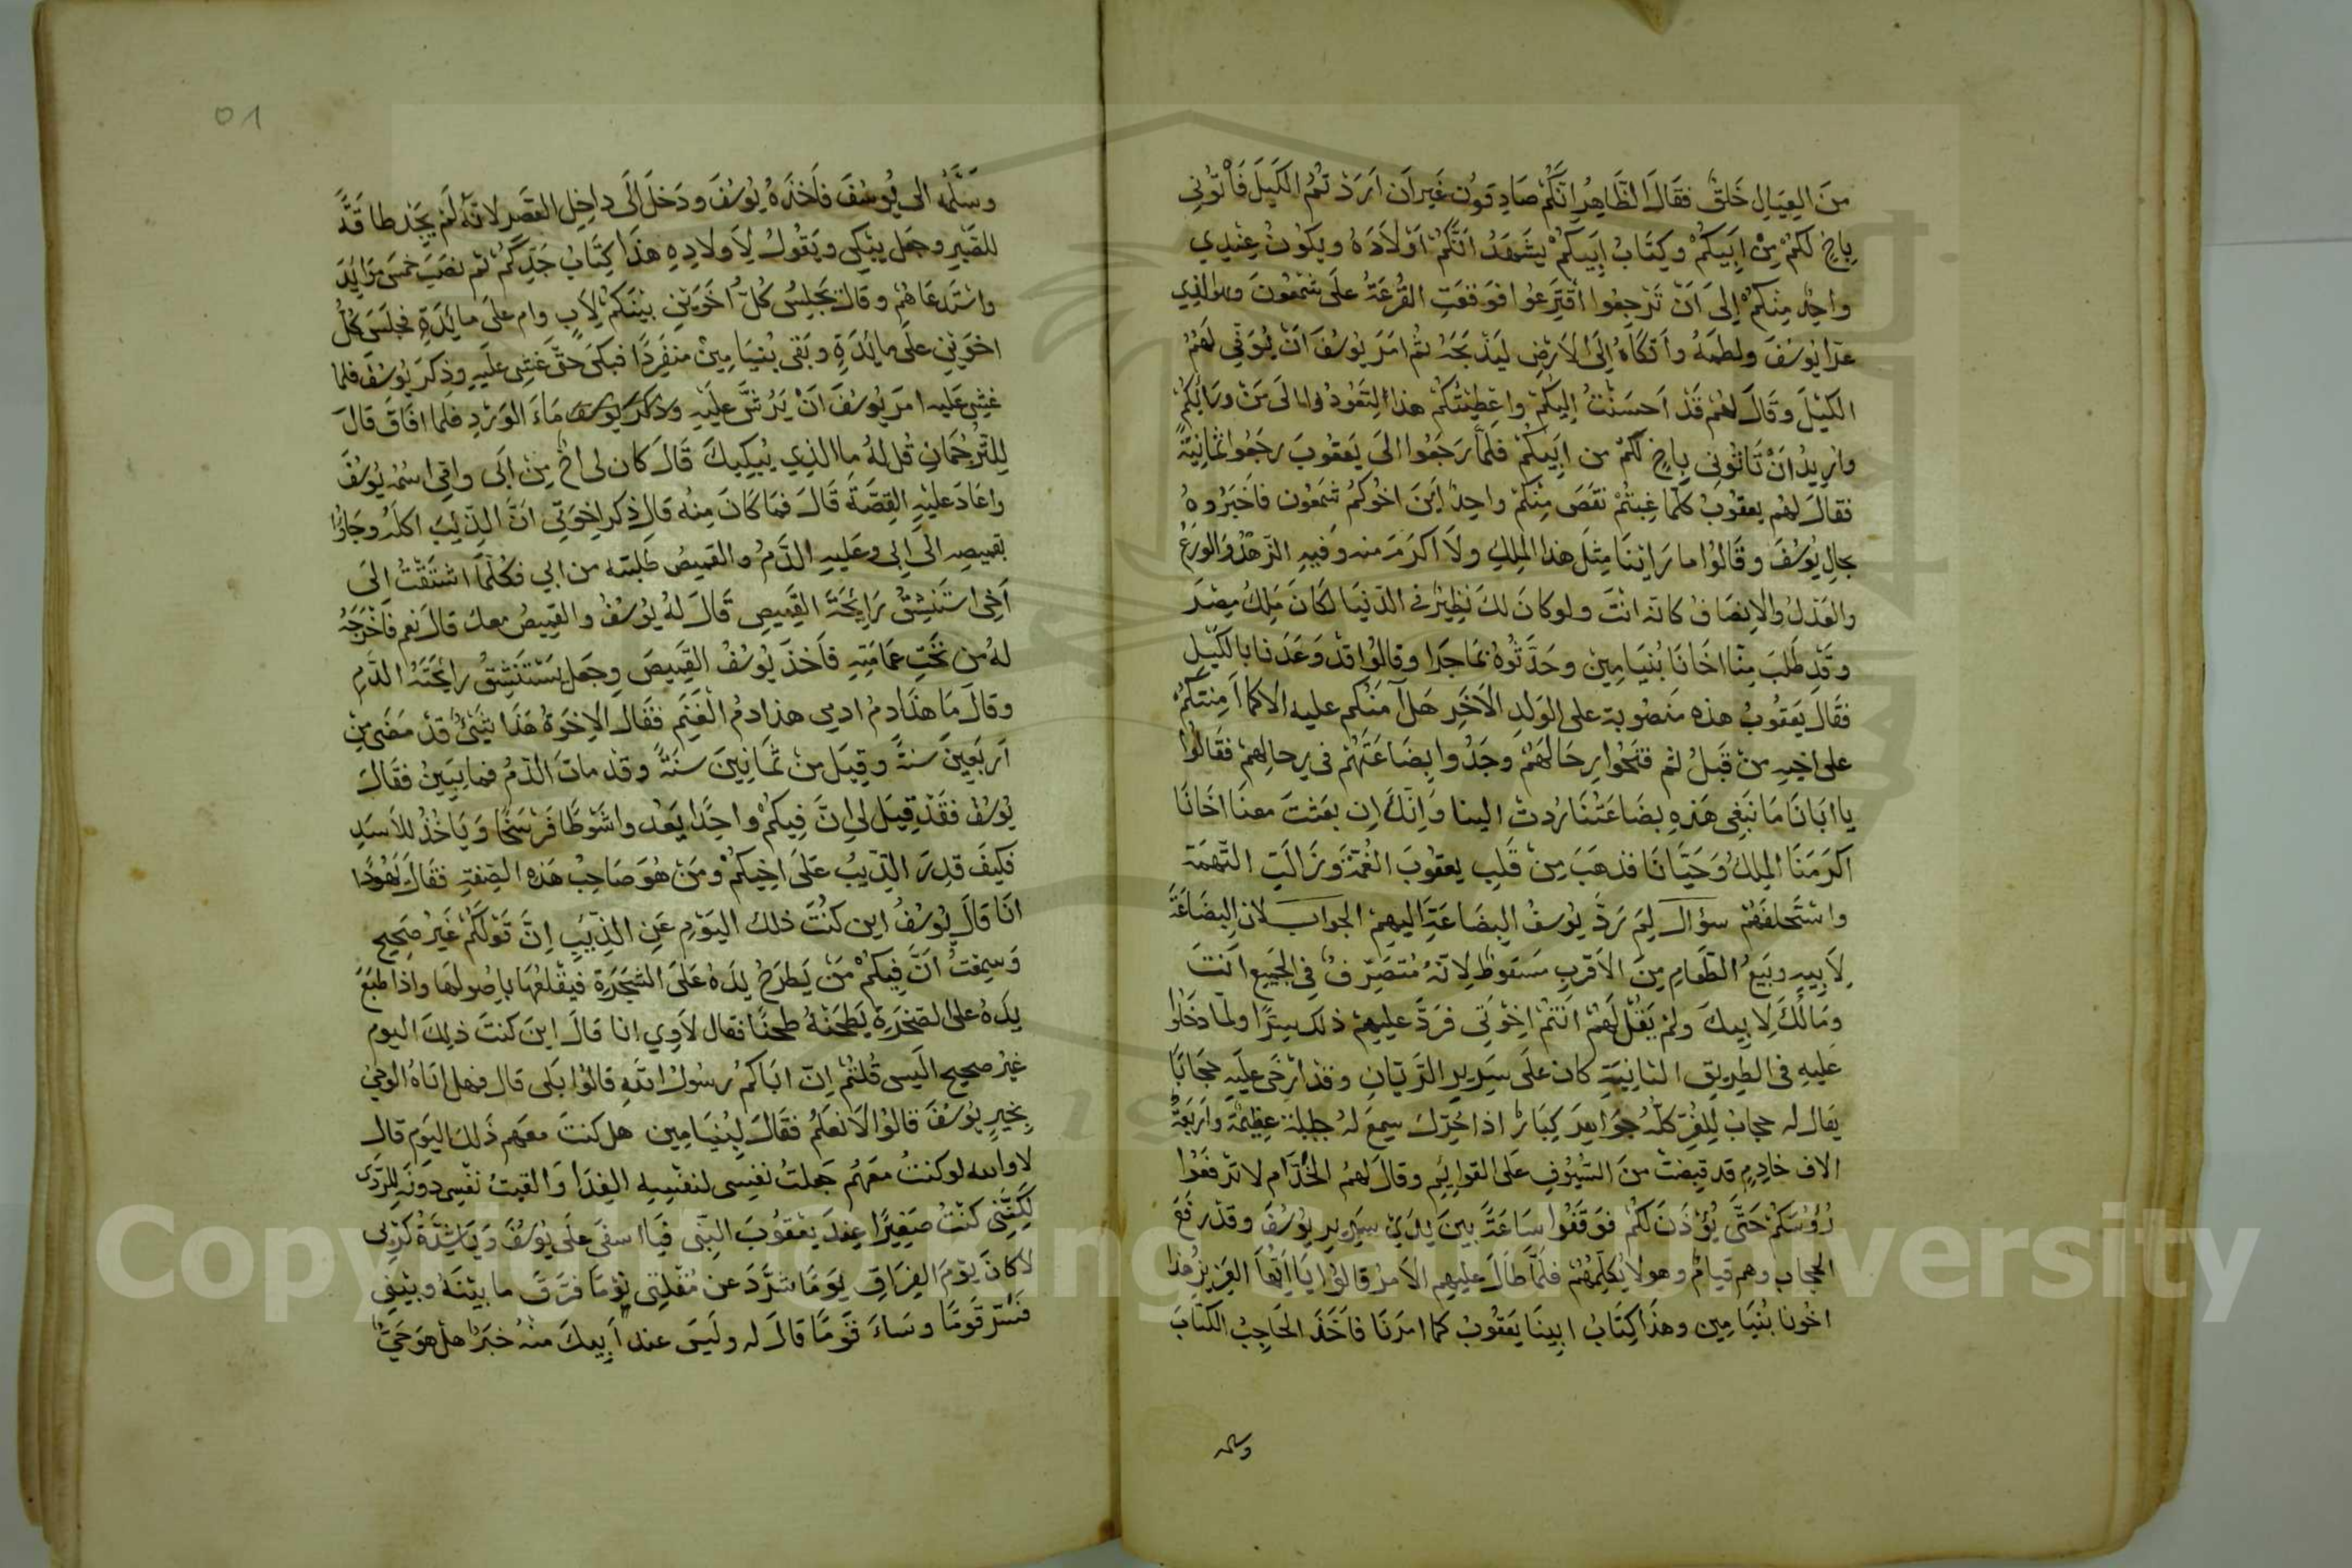 من العِيَالِ خَلقٌ فقَالَ الظَاهِرُ انَّكُمْ صَادِقوُن غَير ان اَرَدْتمُ الكَيلَ فَأتوُنِى
بِاَخٍ لكُمْ مِنْ اَبِيكُمْ وكِتَابُ اَبِيكمْ يشَهَدُ انَّكُمْ اوْلاَدَهُ ويكوُنُ عِندِي
واحِد مِنكمْ اِلىَ اَنْ تَرجِعُوا اقتَرِعوُا فوَقعَتِ القُرعَةُ علَى شمَعُونَ وهوَ الذِي
عزا يوُسُفَ ولطمَهُ واَتكَاهُ اِلىَ الاَرضِ ليَذْبَحَهُ ثم امَرَ يوُسُفَ اَنْ يُوَفِّى لهَمُ
الكَيْلَ وقَالَ لهُم قَدْ اَحسَنْتُ اِليكُمْ واعطيْتُكُمْ هذا لتَعُودُوا الىَ مَنْ وراَئِكُمْ
واُرِيدُ اَنْ تَاتوُنِى بِاَخٍ لكُم من اَبِيكُم فلمَّا رَجَعُوا الىَ يَعقوُبَ رجَعُوا ثمَانِيَة
فقالَ لهُم يعقوُبُ كلّمَا غِبتُمْ نقَصَ مِنكُمْ واحِدٌ اَينَ اخوُكمُ شمَعُون فاَخبَرُوهُ
بحالِ يوُسُفَ وقَالوُا ما رَايْنَا مِثلَ هذا الملِكِ ولاَ اكرَمَ منه وفيهِ الزهدُ والوَرَعُ
والعَدْلُ والاِنصَافُ كانّه انْتَ ولو كانَ لكَ نظِيرٌ فى الدّنيَا لكَانَ مَلِكُ مِصْرَ
وقَدْ طلَبَ مِنّا اخَانَا بُنيَامِينْ وحَدَّثوُهُ بمَا جَرَا وقالوُا قدْ وَعَدَنا بالكَيْلِ
فقَالَ يَعقوُبُ هذه منَصُوبة على الوَلدِ الاَخَرِ هَل اَمنُكم عليه الاّ كما اَمِنتكُمْ
على اخِيهِ منْ قبَلُ ثم فتَحُوا رِحَالهَمُ وجَدُوا بِضَاعَتَهُمْ فى رِحالِهمْ فقَالوُا
يا ابَانَا مَا نَبَغِى هَذِهِ بِضَاعَتُنَا رُدتْ الينا وَاِنّكَ اِن بعَثتَ معنَا اخَانَا
اَكرَمَنَا الملِكُ وَحَيَّانَا فذهَبَ مِنْ قَلبِ يعقوُبَ الغُمّة وزَالَتِ التّهمَة
واسْتَحلفَهُمْ سؤال لِمَ رَدَّ يوُسفُ البِضَاعَةَ اليهِمْ الجواب لان البِضَاعَةَ
لاَبِيهِ وبَيعُ الطّعَامِ مِنَ الاَقرَبِ سَقوُط لاِنّهُ مُتصَرّفٌ فى الجَميع اَنتَ
وَمَالُكَ لاِبِيكَ ولمْ يَقُلْ لَهُمْ اَنتُمْ اِخْوَتى فرَدَّ عليهِمْ ذلك سِرًّا ولمّا دَخَلوُا
عَليهِ فى الطِريقِ الثانِيَةِ كان علَى سَرِيرِ الرّيّانِ وقدْ اَرخَى عليَهِ حجَابًا
يقَال له حجابُ للِفُرّ كلّهُ جَوَاهِر كِبَارْ اذا حُرّكَ سِمعَ لهُ جلبَلَة عِظِيمَة واَربَعَة
الاف خادِمٍ قد قبِضتْ منَ السّيُوفِ علَى القوائِمِ وقالَ لهمُ الخُدّام لا ترَفعَوُا
رُؤُسَكُمْ حَتَّى يُؤذَنَ لكُمْ فوَقفَوُا سَاعَةً بينَ يدَيْ سرِيرِ يوُسُفَ وقدْ رفعَ
الحجاب وهم قيامٌ وهو لا يُكلّمُهُمْ فلمَّا طَالَ عليهِم الاَمرُ قالوُا يَا اَيّهَا العَزيزُ هذا
اخُونا بُنيَامِين وهذَا كِتَابُ ابِينَا يَعقوُبْ كما امرَنَا فاَخَذَ الحَاجِبُ الكتَابَ
وسلمه
٥١
وسَلّمَهُ الى يُوسُفَ فاَخذَهُ يوُسُفَ ودَخلَ اِلَى داخِلِ القصَرِ لانّهُ لَم يجَدْ طاقَةً
للصّبرِ وجعَل يبْكِى ويقَوُلُ لاَِولادِهِ هذَا كِتَابُ جَدّكُمْ ثم نصَبَ خمسَ موَايَدَ
واسْتدعَاهُمْ وقالَ يَجلِسُ كلُّ اَخَوَينِ بيْنَكمْ لِاَبٍ وام علَى مائدَةٍ فجلسَ كلُّ
اخوَينِ علَى مائدَةٍ وبَقى بُنيَامِينْ منفَرِدًا فبكىَ حتّى غَشِى عليَهِ وذكرَ يوُسُفَ فلما
غشِى عَليه امرَ يوُسُفَ اَنْ يَرُشَّ عليَهِ وذكر يوسف مَاءَ الوَرْدِ فلما افَاقَ قالَ
لِلتّرجُمَانِ قُل لهُ ما الذِي يُبكِيكَ قَالَ كان لى اخٌ مِنْ ابى وامّى اسْمُهُ يوُسُفَ
واعَادَ علَيهِ القِصّةَ قَالَ فمَا كَانَ مِنهُ قال ذكر اِخوَتِى انَّ الذّئبَ اكلَهُ وجَاؤُا
بقَميصِهِ الىَ اَبِى وعَليهِ الدَّمُ والقَميصُ طَلبتهُ من ابى فكلّمَا اشتَقْتُ اِلىَ
اَخِى استنَشِقُ رَايحَةَ القَمِيصِ قَالَ لهُ يوُسُفُ والقمِيصُ معكَ قالَ نَعم فَاَخْرَجَهُ
لهُ من تحَتِ عمَامَتِهِ فاَخذَ يوُسُفُ القَمِيصَ وجَعلَ يستَنشِقُ رائحَةَ الدَّمِ
وقالَ مَا هذَا دمُ ادمِى هذا دمُ الغَنَمِ فقَالَ الاِخوَةُ هَذا شَئٌ قدْ مَضَى مِنْ
اَربَعِينَ سنةً وقيلَ منْ ثمَانِينَ سنَةً وقدْ ماتَ الدّمُ فما يبَينُ فقَالَ
يوُسُفُ فقَدْ قِيلَ لى اِنَّ فِيكُمْ واحِدًا يعَدُ واشوَطًا فَرْسَخًا وَيَاخُذُ للاَسَدِ
فكَيفَ قدِرَ الذّيبُ عَلَى اخِيكُمْ ومَنْ هوَ صَاحِبُ هَذهِ الصّفةِ فقَالَ يَهُودَا
انَا قَالَ يوُسُفُ اين كُنتَ ذلك اليَوْمِ عَنِ الذّئبِ اِنَّ قَوْلكُم غَيرُ صَحِيحٍ
وَسِمعتُ انَّ فِيكُمْ مَنْ يَطرَحُ يدَهُ علَى الشّجَرَةِ فيقْلعُهَا باِصُولهَا واذا طبَعَ
يدَهُ على الصّخرَةِ يطْحَنُهُ طحْنًا فقال لاَوِي انا قالَ اينَ كنتَ ذلِكَ اليوم
غيرُ صحيح الَيس قُلتُمْ اِنَّ ابَاكمُ رسُولُ الله قالوُا بَلَى قالَ فهل اتَاهُ الوَحىُ
بخَبرِ يوُسُفَ قالوُا لاَ نَعلَمُ فقَالَ لِبُنيَامِين هل كنتَ معَهم ذَلكَ اليَوم قال
لا والله لو كنتُ معَهُم جَعلتُ نفِسِى لنفْسِهِ الفِدَا وَالقيتُ نفْسِى دوَنَه للِرَّدَى
لكِنَّنى كنْتُ صَغِيرًا عِندَ يعْقوُبَ النِبّى فيَا اسفَى علَى يوُسُفَ وَيَا شِدّةُ كرْبِى
لا كانَ يَوْمَ الفِرَاقِ يوَمًا شَرَّدَ عن مُقْلتِى نَوْمًا فرَّقَ ما بيْنَهُ وبيْنِى
فَسَرّ قوَمًا وسَاءَ قوَمًا قالَ له ولَيسَ عند اَبِيكَ منْهُ خبَرًا هلْ هوَ حَيٌّ
Copyright © King Saud University